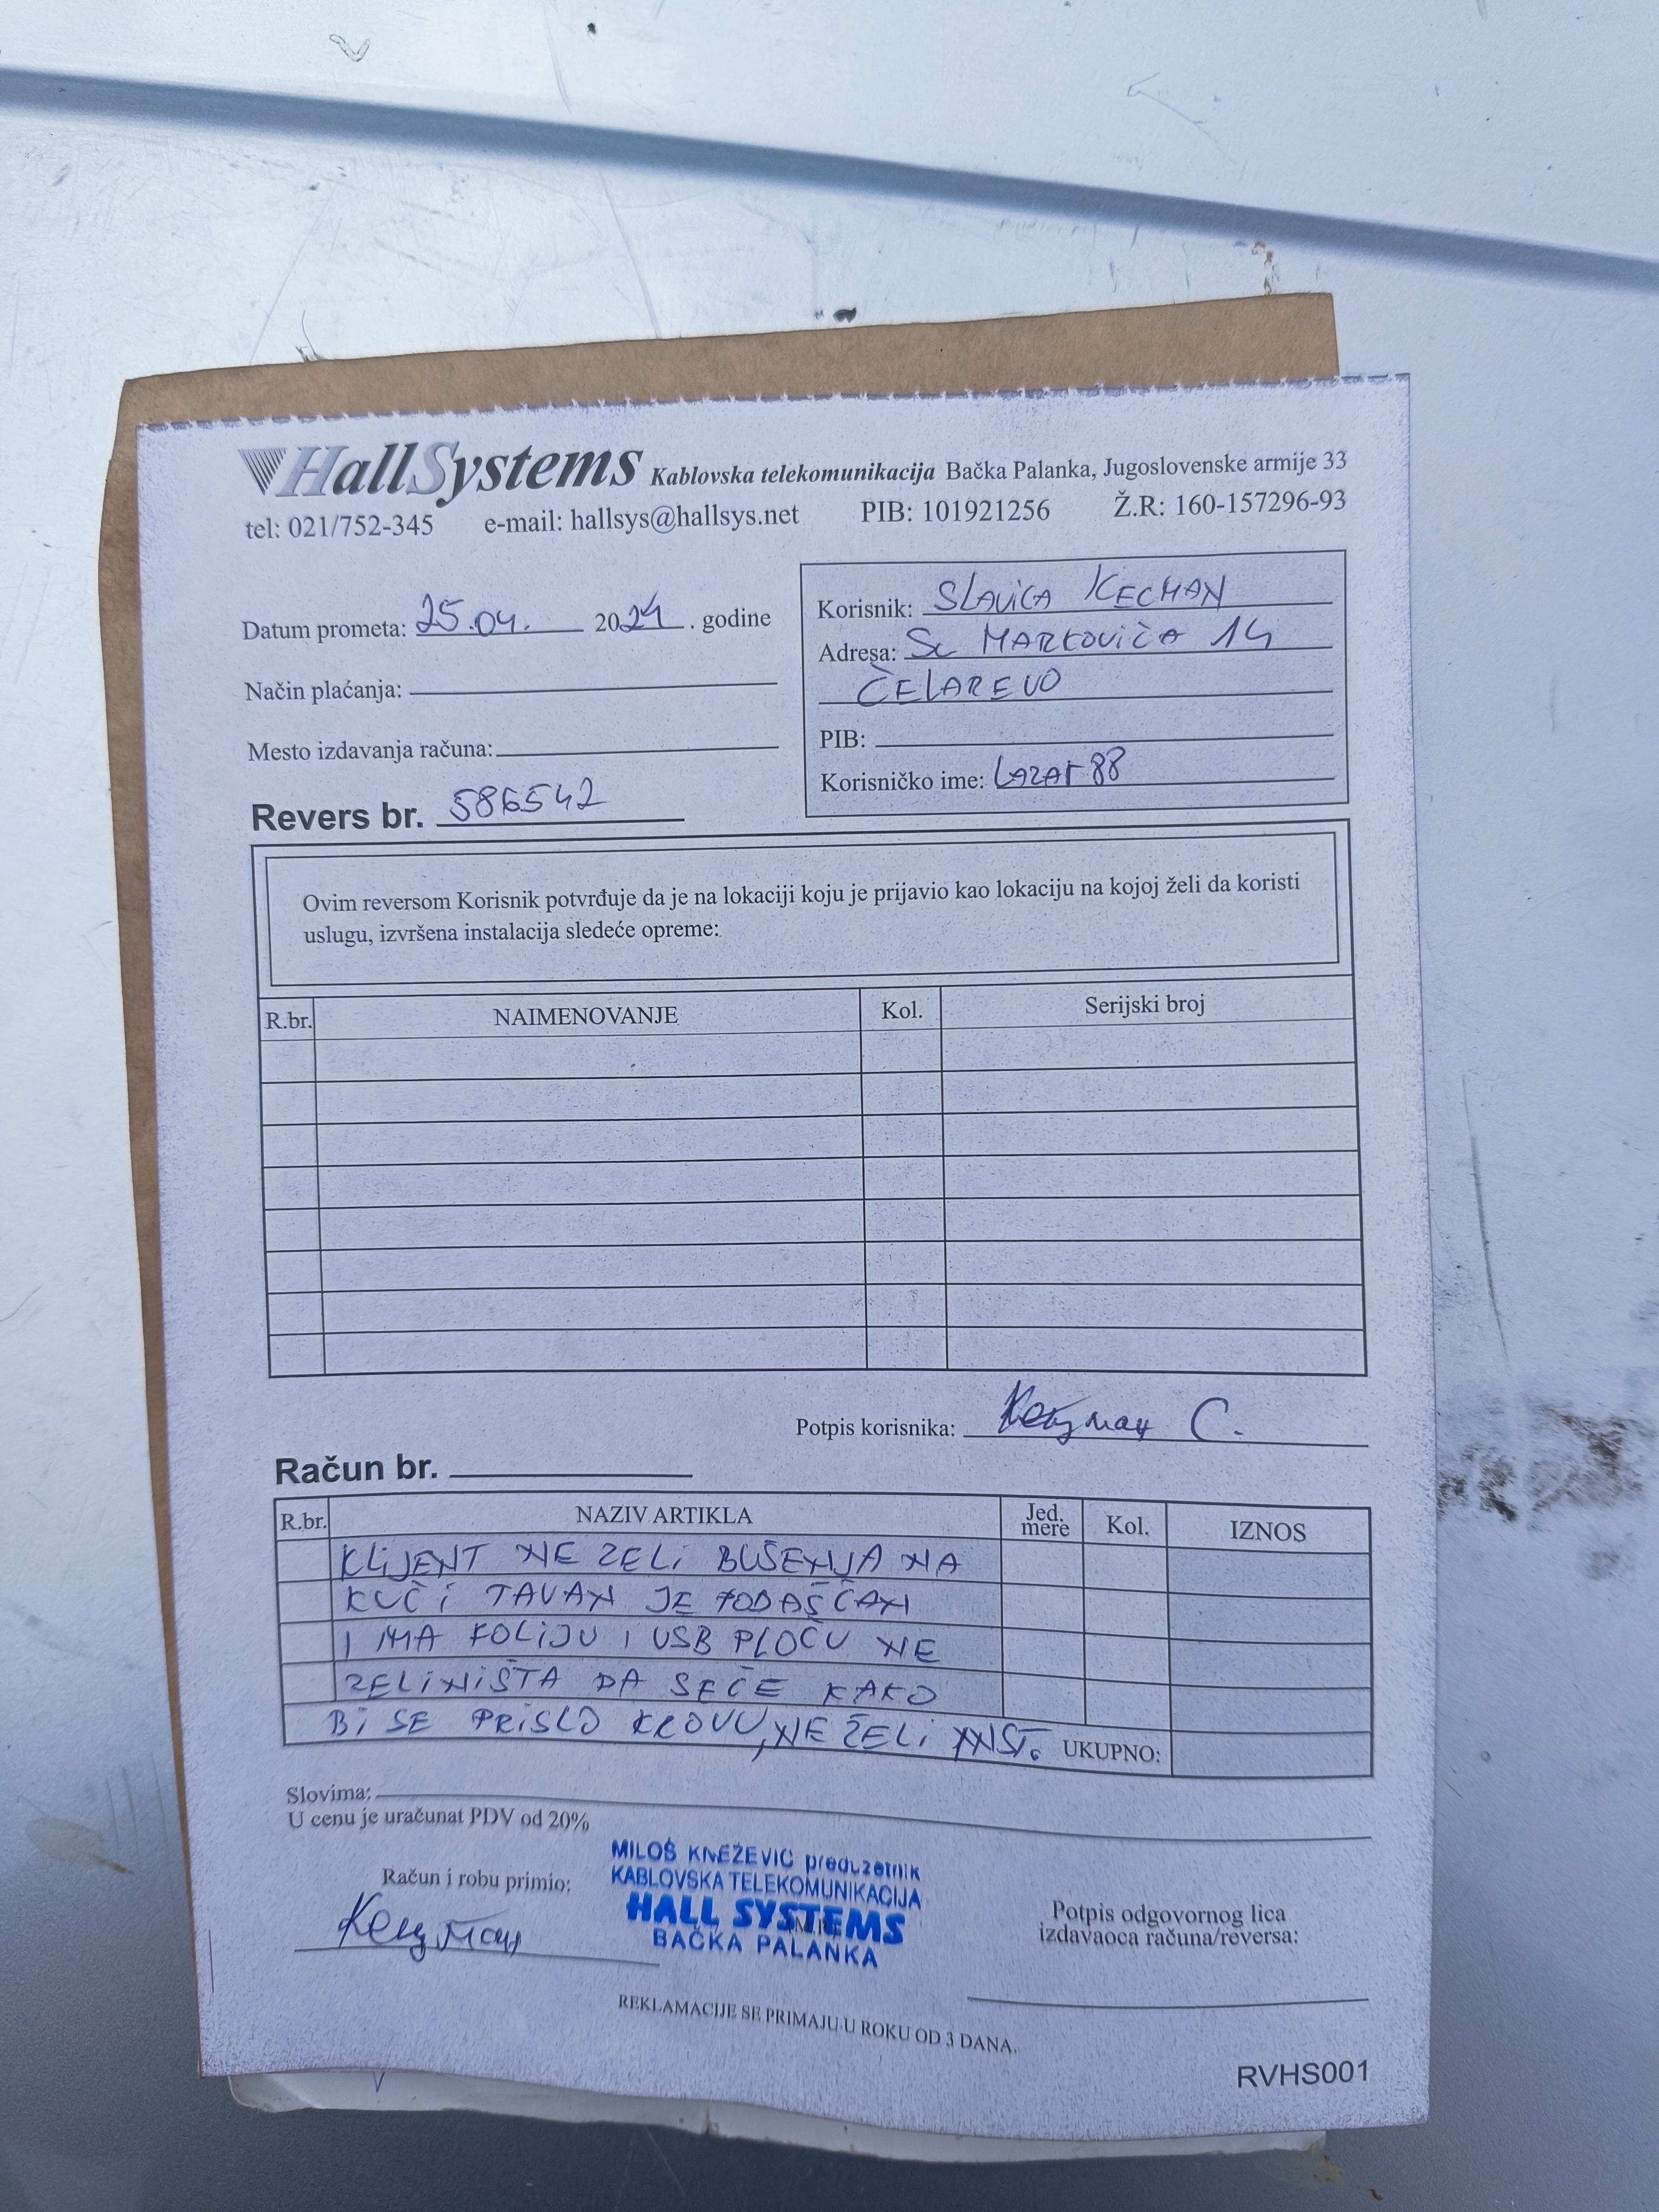 HallSystems Kablovska telekomunikacija Bačka Palanka, Jugoslovenske armije 33
tel: 021/752-345 e-mail: hallsys@hallsys.net PIB: 101921256 Ž.R: 160-157296-93
Datum prometa: 25.04. 2024. godine
Način plaćanja:
Mesto izdavanja računa:
Revers br. 586542
Korisnik: SLAVICA KECMAN
Adresa: Sv MARKOVIĆA 14
ČELAREVO
PIB:
Korisničko ime: LAZAR88
Ovim reversom Korisnik potvrđuje da je na lokaciji koju je prijavio kao lokaciju na kojoj želi da koristi
uslugu, izvršena instalacija sledeće opreme:
R.br. NAIMENOVANJE Kol. Serijski broj
Potpis korisnika: Кецман С.
Račun br.
R.br. NAZIV ARTIKLA Jed. mere Kol. IZNOS
KLIJENT NE ZELI BUŠENJA NA
KUČI TAVAN JE PODAŠČAN
I MA FOLIJU I USB PLOČU NE
ZELI NIŠTA DA SEČE KAKO
BI SE PRISLO KROVU, NE ŽELI INST. UKUPNO:
Slovima:
U cenu je uračunat PDV od 20%
Račun i robu primio:
Кецман
MILOŠ KNEŽEVIĆ preduzetnik
KABLOVSKA TELEKOMUNIKACIJA
HALL SYSTEMS
BAČKA PALANKA
Potpis odgovornog lica
izdavaoca računa/reversa:
REKLAMACIJE SE PRIMAJU U ROKU OD 3 DANA.
RVHS001